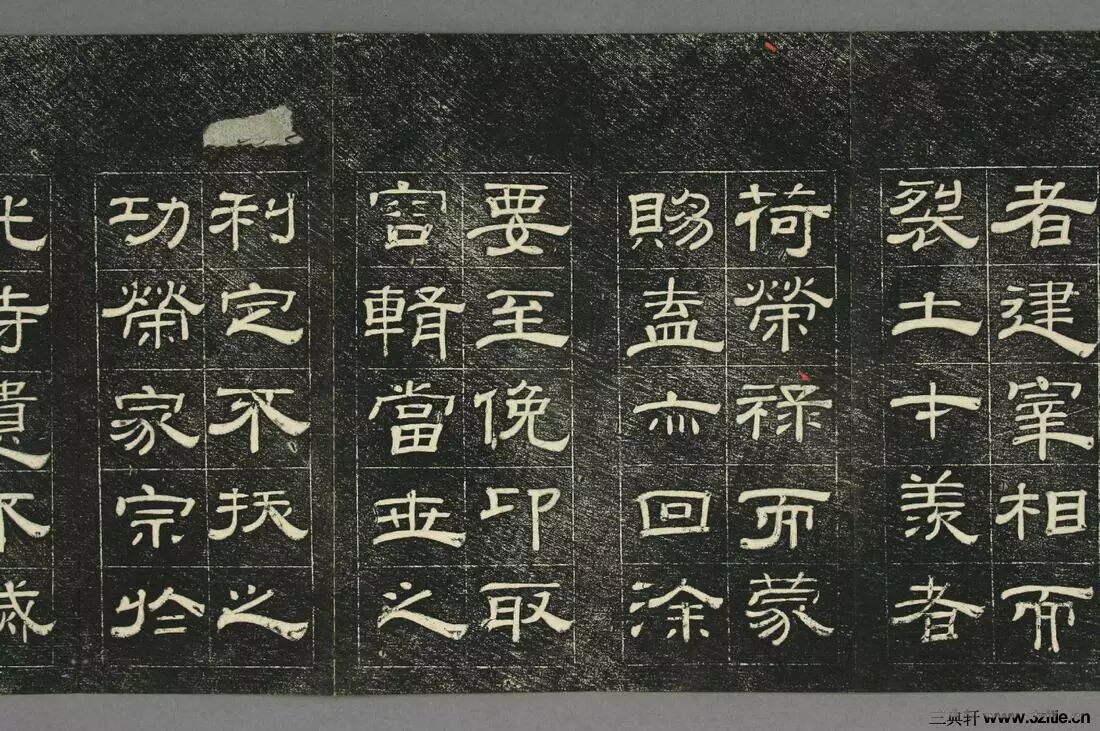 者建宰相而
裂土才羨者
荷榮祿而蒙
賜盍亦回塗
要至俛卬取
容輯當世之
利定不拔之
功榮家宗於
此時遺不滅
三典轩 www.32itie.cn